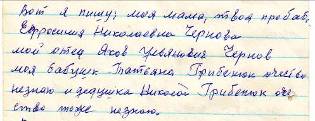 Вот я пишу; моя мама, твоя пробаб,
Ефросиния Николаевна Чернова
мой отец Яков Чернов
моя бабушк Татьяна Грибенюк очество
незнаю и дедушка Николай Грибенюк оче
ство тоже незнаю.